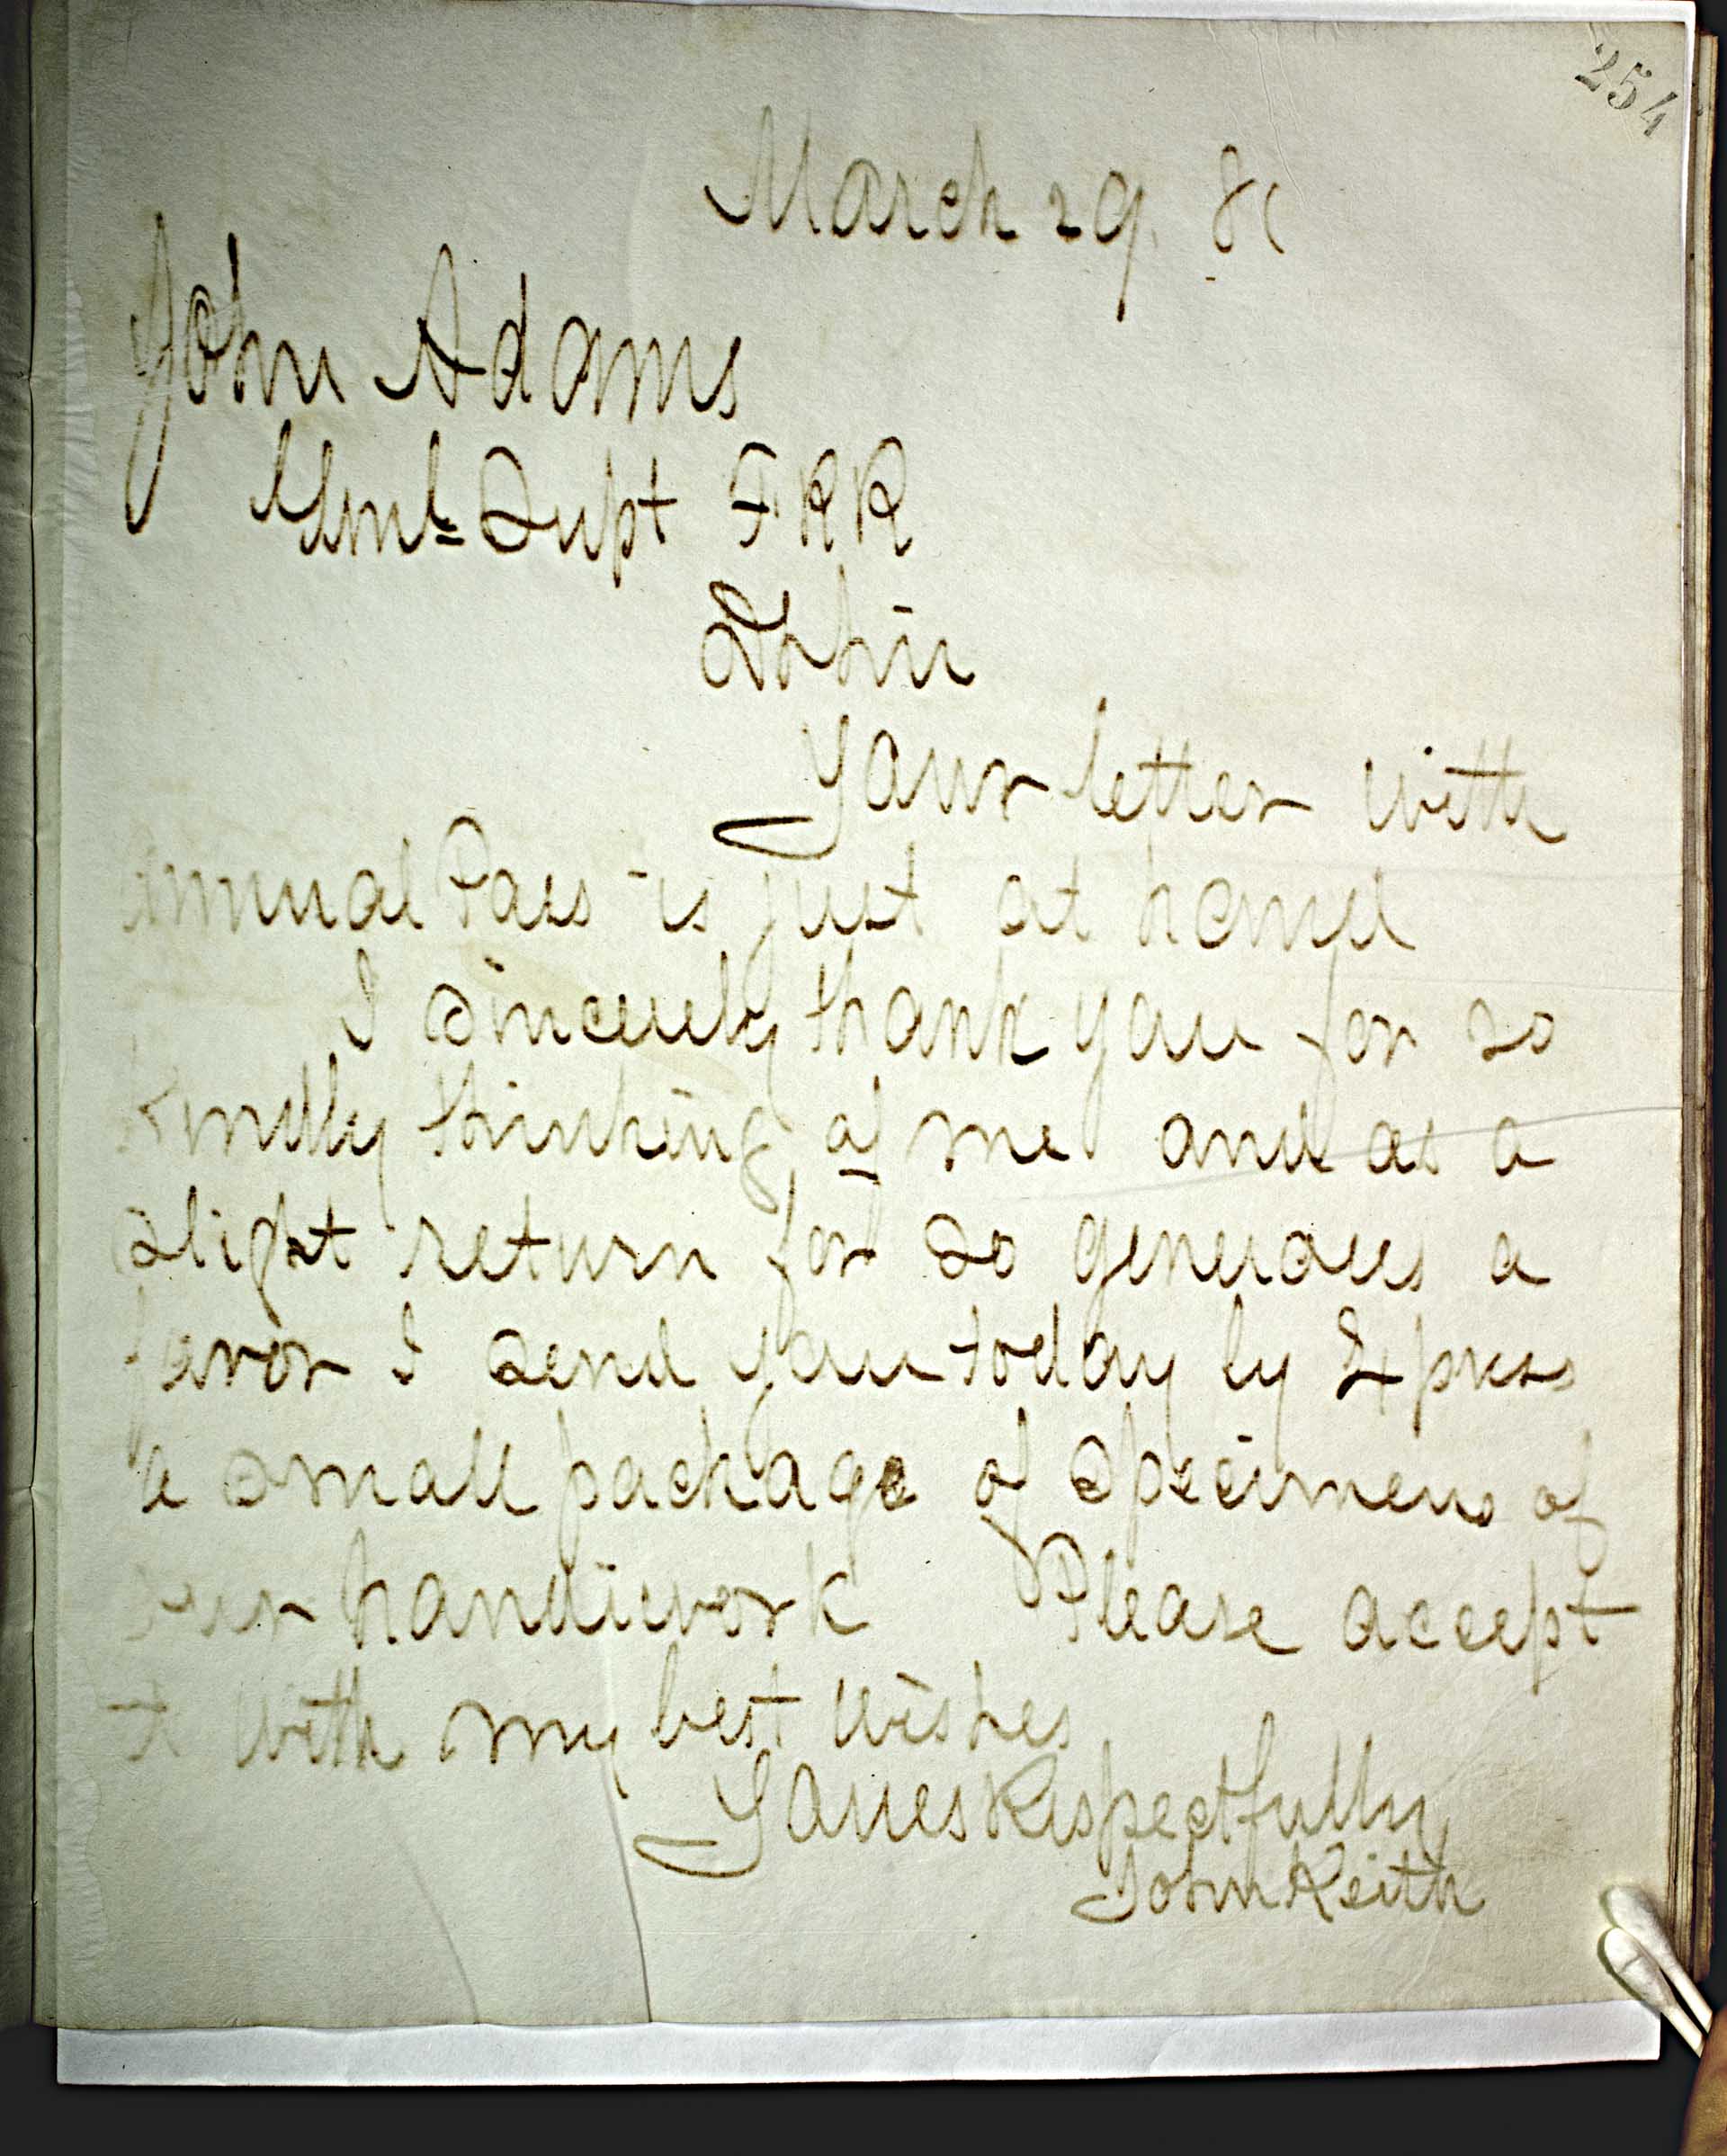 254
March 29. 81
John Adams
Genl Supt F R R
D Sir
Your letter with
annual Pass is just at hand
I sincerely thank you for so
kindly thinking of me and as a
slight return for so generous a
favor I send you today by Express
a small package of Specimens of
our handiwork Please accept
it with my best wishes
Yours Respectfully
John Keith